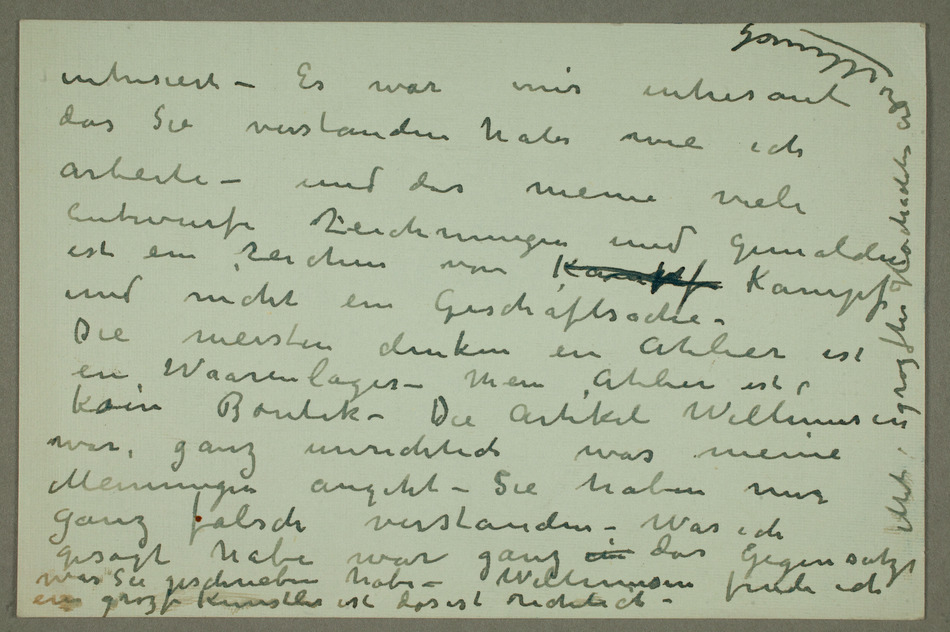 intresiert – Es war mir intresant
das Sie verstanden habe wie ich
arbeite – und das meine viele
Entwürfe Zeichnungen und Gemälden
ist ein Zeichen von Kampf Kampf
und nicht ein Geschäftsache –
Die meisten denken ein Atelier ist
ein Waarenlager – Mein Atelier ist
kein Boutik – Die Artikel Willumsen
war, ganz unrichtich was meine
Meinungen angeht – Sie haben mir
ganz falsch verstanden – Was ich
gesagt habe war ganz ein das Gegensatz
was Sie geschrieben habe – Willumsen finde ich
ein grozse Künstler ist das ist richtich –
Mit grozster Hochachtung